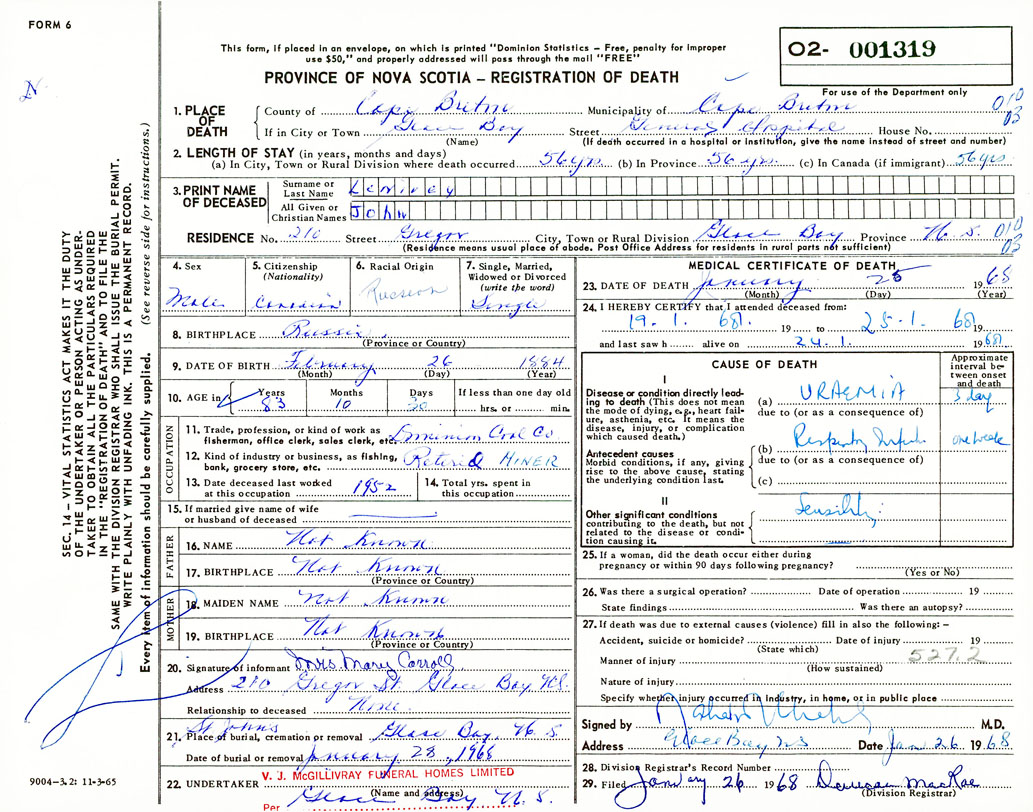 FORM 6
This form, if placed in an envelope, on which is printed "Dominion Statistics – Free, penalty for improper
use $50," and properly addressed will pass through the mail "FREE"
O2- 001319
For use of the Department only
PROVINCE OF NOVA SCOTIA – REGISTRATION OF DEATH
1. PLACE OF DEATH County of Cape Breton Municipality of Cape Breton 010 03
If in City or Town Glace Bay Street General Hospital House No.
(Name) (If death occurred in a hospital or institution, give the name instead of street and number)
2. LENGTH OF STAY (in years, months and days)
(a) In City, Town or Rural Division where death occurred 56 yrs. (b) In Province 56 yrs. (c) In Canada (if immigrant) 56 yrs
3. PRINT NAME OF DECEASED
Surname or Last Name
All Given or Christian Names John
RESIDENCE No. 210 Street Gregor City, Town or Rural Division Glace Bay Province N. S. 010 03
(Residence means usual place of abode. Post Office Address for residents in rural parts not sufficient)
4. Sex
Male
5. Citizenship
(Nationality)
Canadian
6. Racial Origin
Russian
7. Single, Married,
Widowed or Divorced
(write the word)
Single
8. BIRTHPLACE Russia
(Province or Country)
9. DATE OF BIRTH February 26 1884
(Month) (Day) (Year)
10. AGE in Years Months Days If less than one day old
83 10 30 hrs. or min.
OCCUPATION
11. Trade, profession, or kind of work as
fisherman, office clerk, sales clerk, etc. Dominion Coal Co
12. Kind of industry or business, as fishing,
bank, grocery store, etc. Retired MINER
13. Date deceased last worked
at this occupation 1952
14. Total yrs. spent in
this occupation
15. If married give name of wife
or husband of deceased
FATHER
16. NAME Not Known
17. BIRTHPLACE Not Known
(Province or Country)
MOTHER
18. MAIDEN NAME Not Known
19. BIRTHPLACE Not Known
(Province or Country)
20. Signature of informant Mrs Mary Carroll
Address 210 Gregor St. Glace Bay, N.S.
Relationship to deceased None
St John's
21. Place of burial, cremation or removal Glace Bay, N. S.
Date of burial or removal January 28, 1968
V. J. McGILLIVRAY FUNERAL HOMES LIMITED
22. UNDERTAKER
(Name and address)
Per Glace Bay N. S.
MEDICAL CERTIFICATE OF DEATH
23. DATE OF DEATH January 25 1968
(Month) (Day) (Year)
24. I HEREBY CERTIFY that I attended deceased from:
19. 1. 68. 19 to 25. 1. 68 19
and last saw h alive on 24. 1. 1968
CAUSE OF DEATH
Approximate
interval be-
tween onset
and death
I
Disease or condition directly lead-
ing to death (This does not mean
the mode of dying, e.g., heart fail-
ure, asthenia, etc. It means the
disease, injury, or complication
which caused death.)
(a) URAEMIA 3 day
due to (or as a consequence of)
(b) Respiratory one week
due to (or as a consequence of)
(c)
Antecedent causes
Morbid conditions, if any, giving
rise to the above cause, stating
the underlying condition last.
II
Other significant conditions
contributing to the death, but not
related to the disease or condi-
tion causing it.
25. If a woman, did the death occur either during
pregnancy or within 90 days following pregnancy?
(Yes or No)
26. Was there a surgical operation? Date of operation 19
State findings Was there an autopsy?
27. If death was due to external causes (violence) fill in also the following: –
Accident, suicide or homicide? Date of injury 19
(State which)
527.2
Manner of injury
(How sustained)
Nature of injury
Specify whether injury occurred in industry, in home, or in public place
Signed by M.D.
Address Glace Bay NS Date Jan 26 1968
28. Division Registrar's Record Number
29. Filed January 26 1968 MacRae
(Division Registrar)
SEC. 14 – VITAL STATISTICS ACT MAKES IT THE DUTY
OF THE UNDERTAKER OR PERSON ACTING AS UNDER-
TAKER TO OBTAIN ALL THE PARTICULARS REQUIRED
IN THE "REGISTRATION OF DEATH" AND TO FILE THE
SAME WITH THE DIVISION REGISTRAR WHO SHALL ISSUE THE BURIAL PERMIT.
WRITE PLAINLY WITH UNFADING INK. THIS IS A PERMANENT RECORD.
Every item of information should be carefully supplied. (See reverse side for instructions.)
9004–3.2: 11-3-65